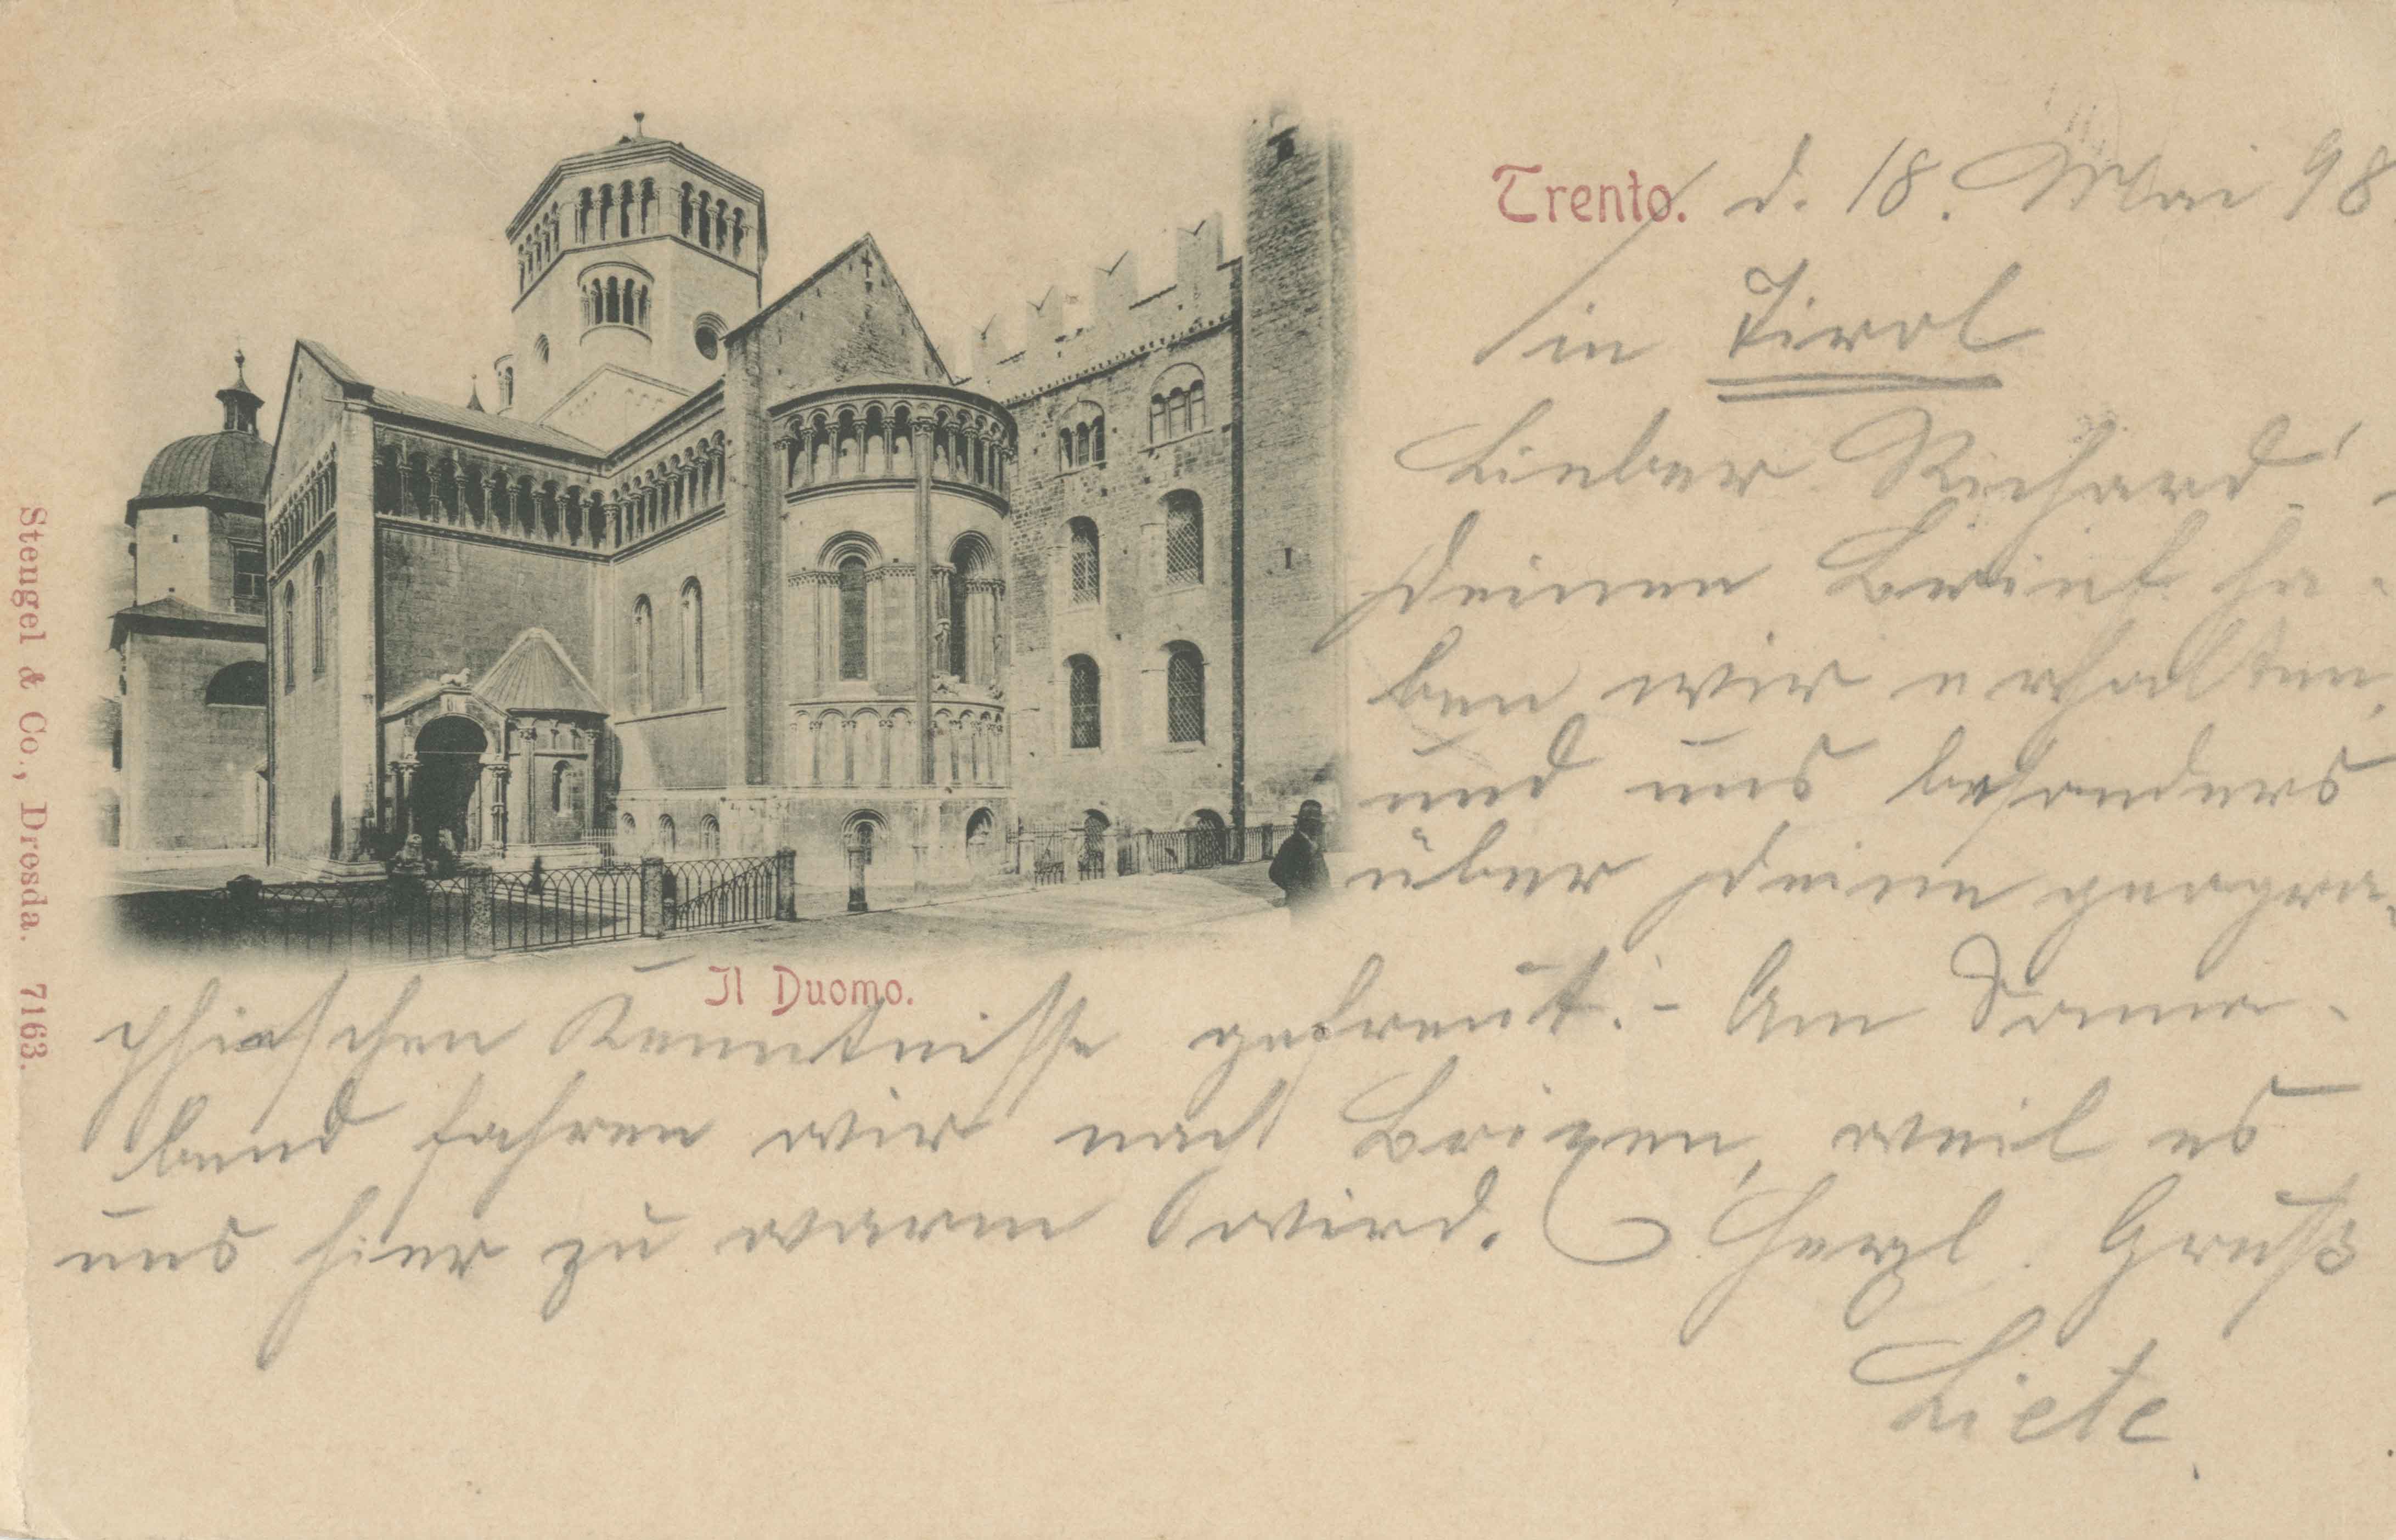 Trento. d. 18. Mai 98.
in Tirol
Lieber Richard! -
Deinen Brief ha-
ben wir erhalten,
und uns besonders
über Deine geogra-
phischen Kenntnisse gefreut. - Am Sonna-
bend fahren wir nach Brixen, weil es
uns hier zu warm wird. Herzl. Gruß
Liete
Il Duomo.
Stengel & Co., Dresda. 7163.